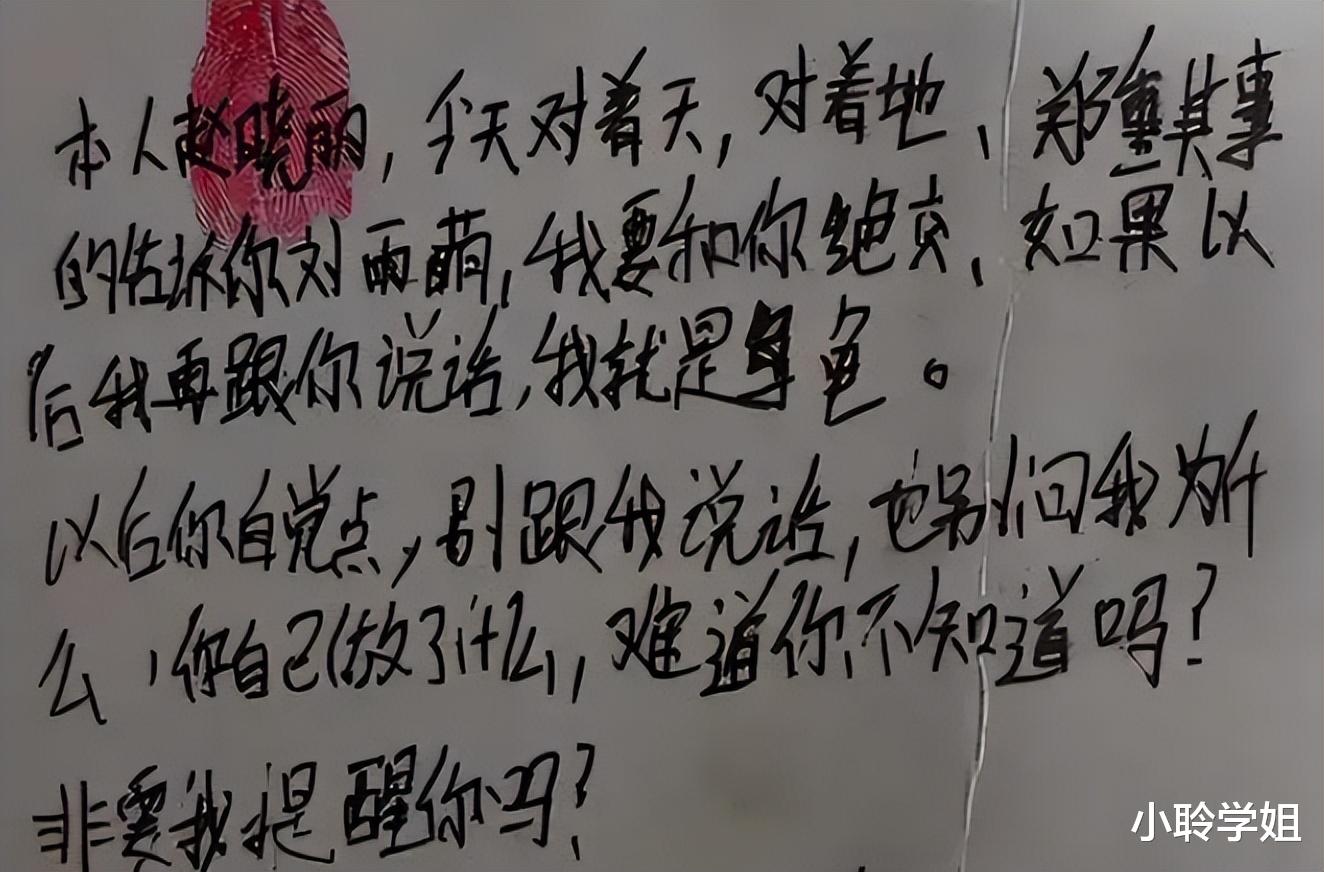 本人赵晓丽,今天对着天,对着地、郑重其事
的告诉你刘雨萌,我要和你绝交、如果以
后我再跟你说话,我就是乌龟。
以后你自觉点,别跟我说话,也别问我为什
么,你自己做了什么,难道你不知道吗?
非要我提醒你吗?
小聆学姐